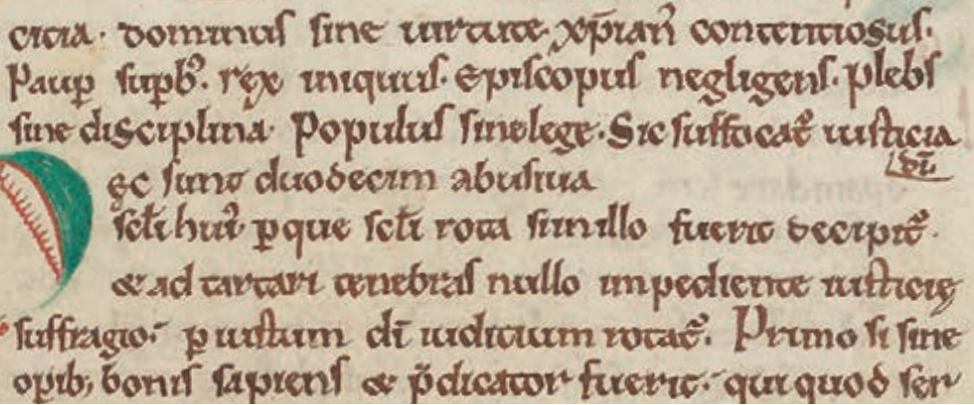 citia. dominus sine uirtute. xp̄ian᷒ contentiosus.
Paup̱ sup̱b᷒. rex iniquus. Episcopus negligens. plebs
sine disciplina. Populus sine lege. Sic suffocat᷒ iusticia
dī.
ęc sunt duodecim abusiua
sc̄li hui᷒. ꝑ que sc̄li rota si in illo fuerit decipit᷒.
& ad tartari tenebras nullo impediente iusticię
suffragio. ꝑ iustum dī iuditium rotat᷒. Primo si sine
oꝑib; bonis sapiens & p̄dicator fuerit. qui quod ser